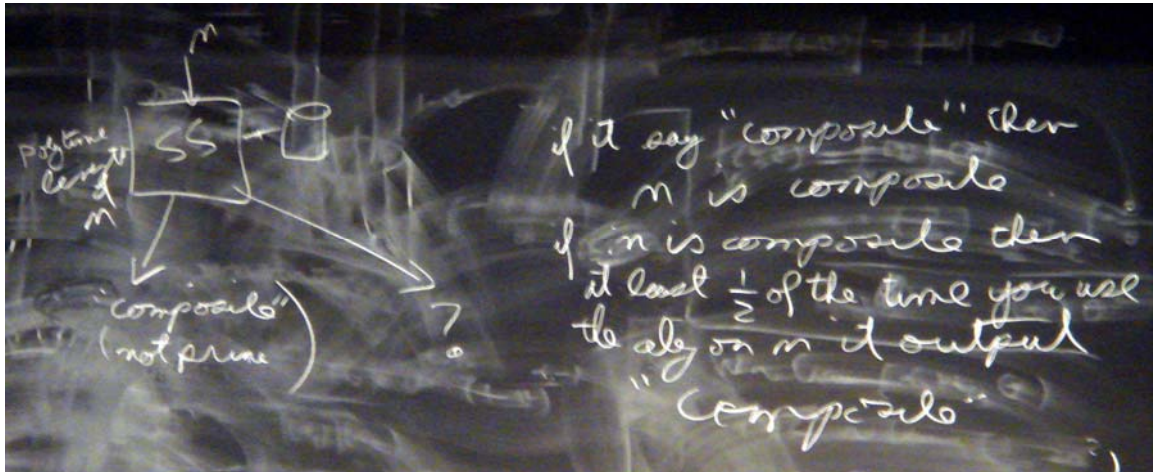 n
SS
polytime
length
n
"composite"
(not prime)
?
if it say "composite" then
n is composite
if n is composite then
at least 1/2 of the time you use
the alg on n it output
"Composite"